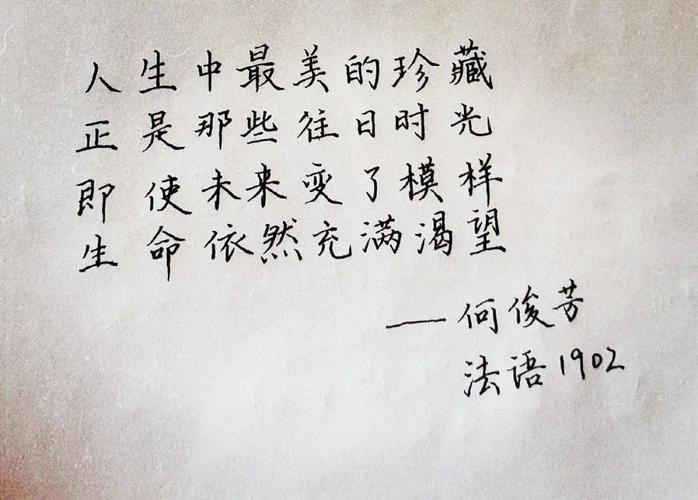 人生中最美的珍藏
正是那些往日时光
即使未来变了模样
生命依然充满渴望
——何俊芳
法语1902